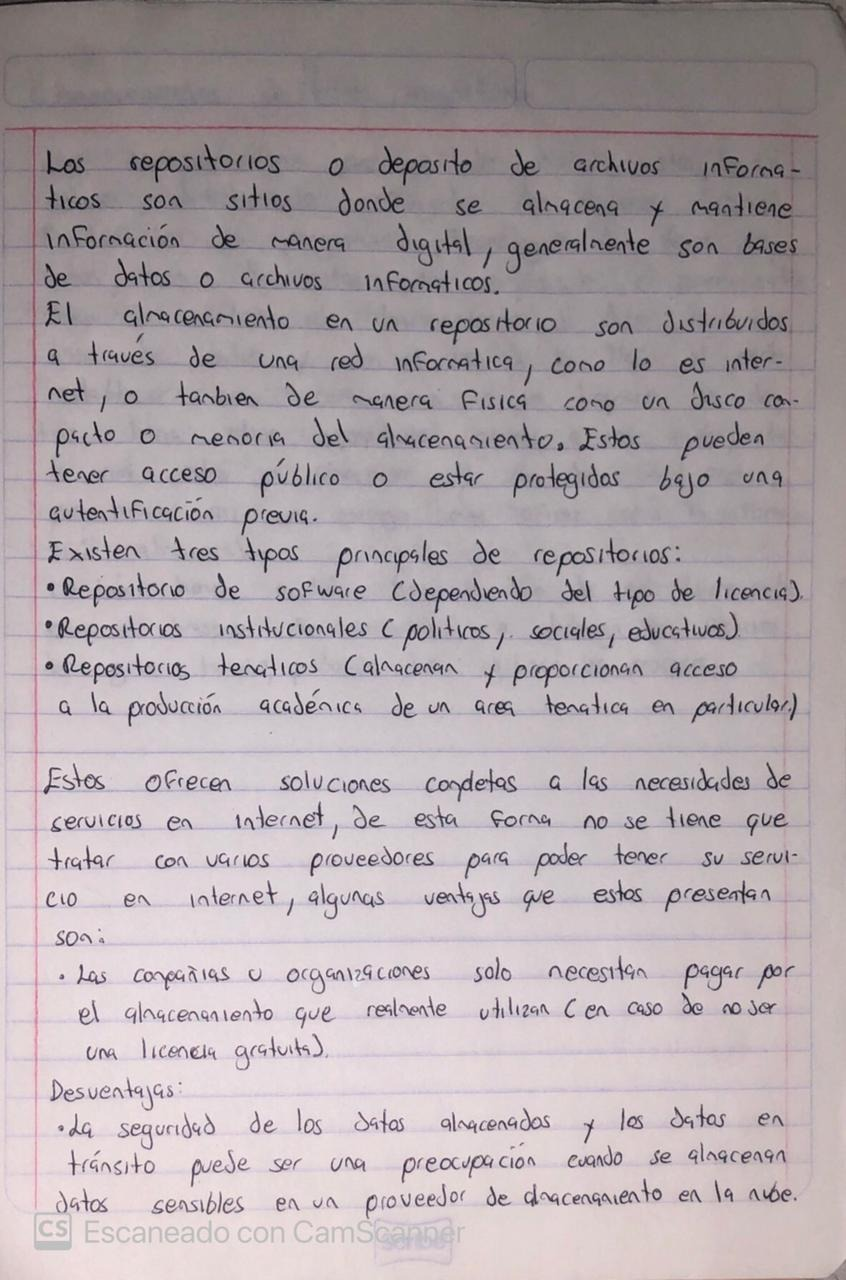 Los repositorios o deposito de archivos informa-
ticos son sitios donde se almacena y mantiene
información de manera digital, generalmente son bases
de datos o archivos informaticos.
El almacenamiento en un repositorio son distribuidos
a través de una red informatica, como lo es inter-
net, o tambien de manera fisica como un disco com-
pacto o memoria del almacenamiento. Estos pueden
tener acceso público o estar protegidos bajo una
autentificación previa.
Existen tres tipos principales de repositorios:
• Repositorio de sofware (dependiendo del tipo de licencia).
• Repositorios institucionales (politicos, sociales, educativos)
• Repositorios tematicos (almacenan y proporcionan acceso
a la producción académica de un area tematica en particular.)
Estos ofrecen soluciones completas a las necesidades de
servicios en internet, de esta forma no se tiene que
tratar con varios proveedores para poder tener su servi-
cio en internet, algunas ventajas que estos presentan
son:
• Las compañias u organizaciones solo necesitan pagar por
el almacenamiento que realmente utilizan (en caso de no ser
una licencia gratuita).
Desventajas:
• La seguridad de los datos almacenados y los datos en
tránsito puede ser una preocupación cuando se almacenan
datos sensibles en un proveedor de almacenamiento en la nube.
CS Escaneado con CamScanner
scribe